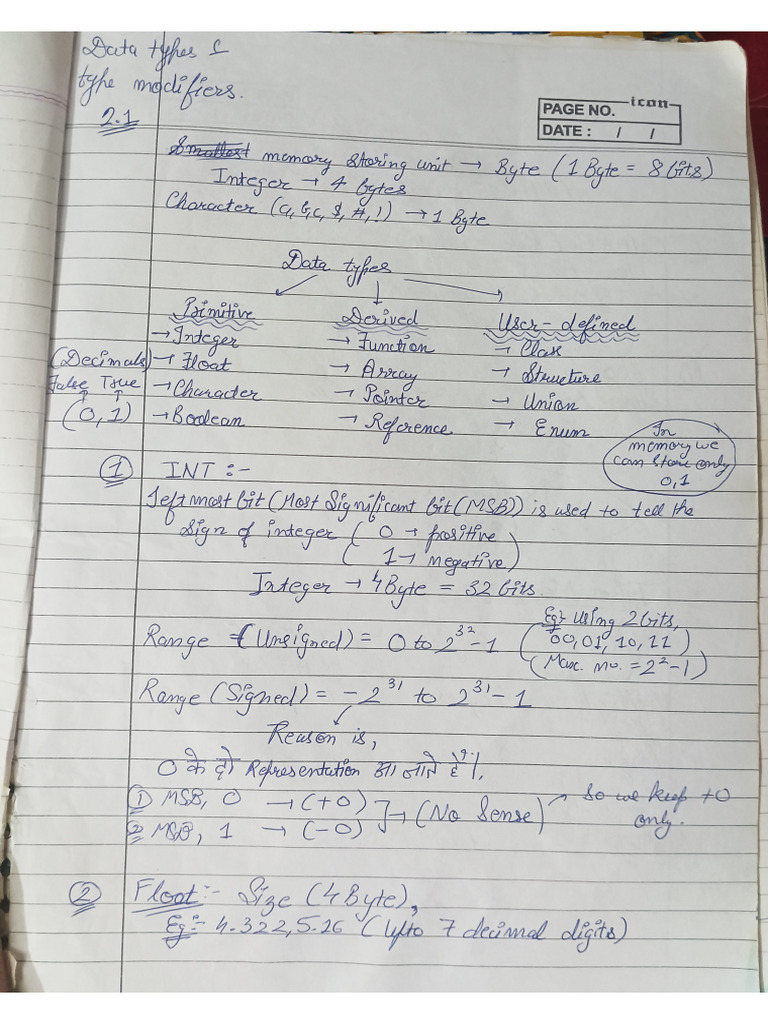 Data types &
type modifiers.
2.1
icon
PAGE NO.
DATE : / /
Smallest memory storing unit → Byte (1 Byte = 8 bits)
Integer → 4 bytes
Character (a, b, c, $, #, !) → 1 Byte
Data types
Primitive Derived User-defined
→ Integer → Function → Class
(Decimals) → Float → Array → Structure
False True → Character → Pointer → Union
(0, 1) → Boolean → Reference → Enum
In
memory we
can store only
0,1
① INT :-
Leftmost bit (Most Significant bit (MSB)) is used to tell the
Sign of integer ( 0 → positive
( 1 → negative)
Integer → 4 Byte = 32 bits.
Range = (Unsigned) = 0 to 2^32 - 1
Eg:- using 2 bits,
(00, 01, 10, 11)
(Max. no. = 2^2 - 1)
Range (Signed) = -2^31 to 2^31 - 1
Reason is,
0 के दो Representation आ जाते हैं।,
① MSB, 0 → (+0)
② MSB, 1 → (-0)
→ (No Sense) → So we keep +0
only.
② Float :- Size (4 Byte),
Eg:- 4.322, 5.26 (Upto 7 decimal digits)